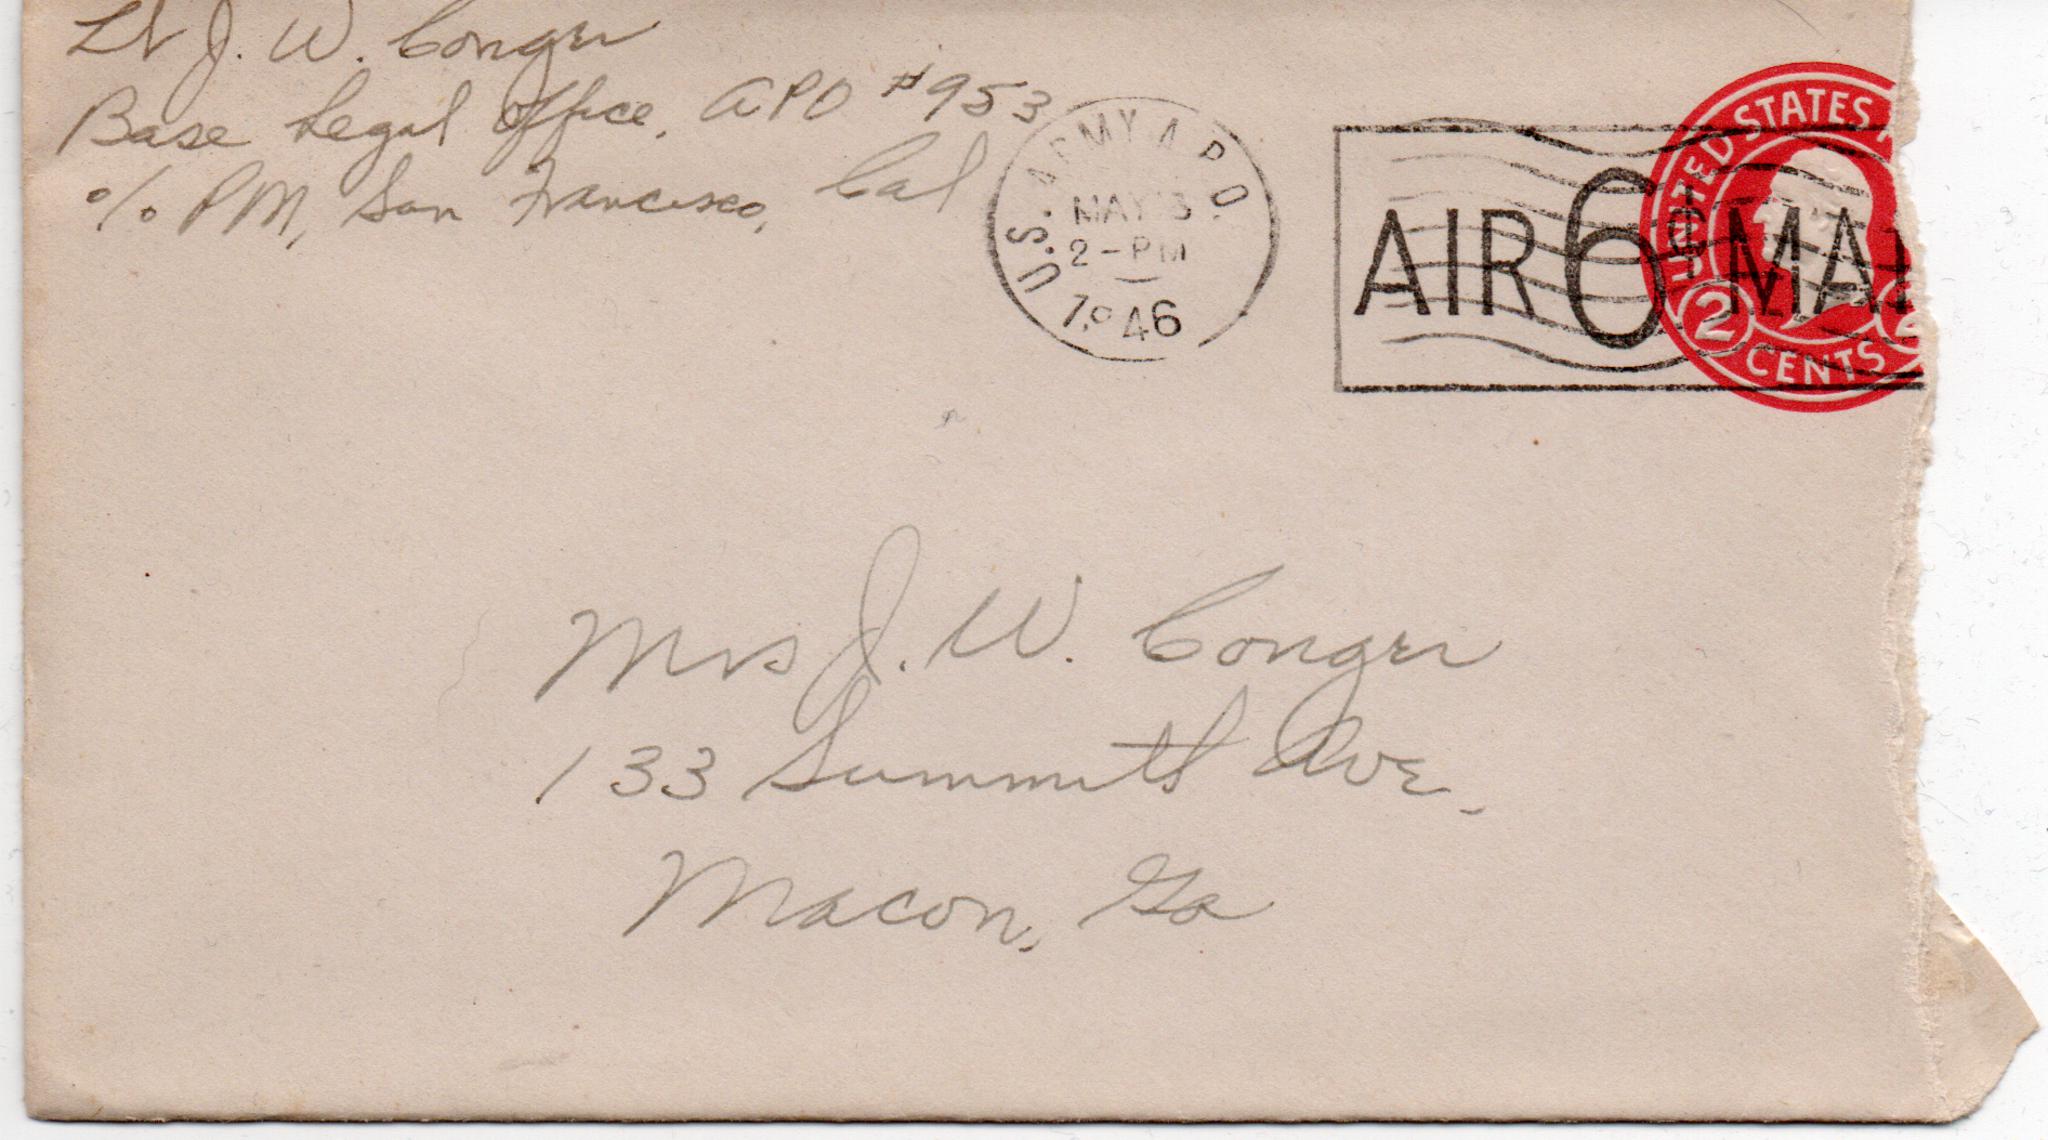 Lt J. W. Conger
Base Legal Office, APO #953
% PM, San Francisco, Cal
U.S. ARMY A.P.O.
MAY 13
2-PM
1946
AIR 6¢ MAI
UNITED STATES
2 CENTS 2
Mrs J. W. Conger
133 Summitt Ave.
Macon, Ga